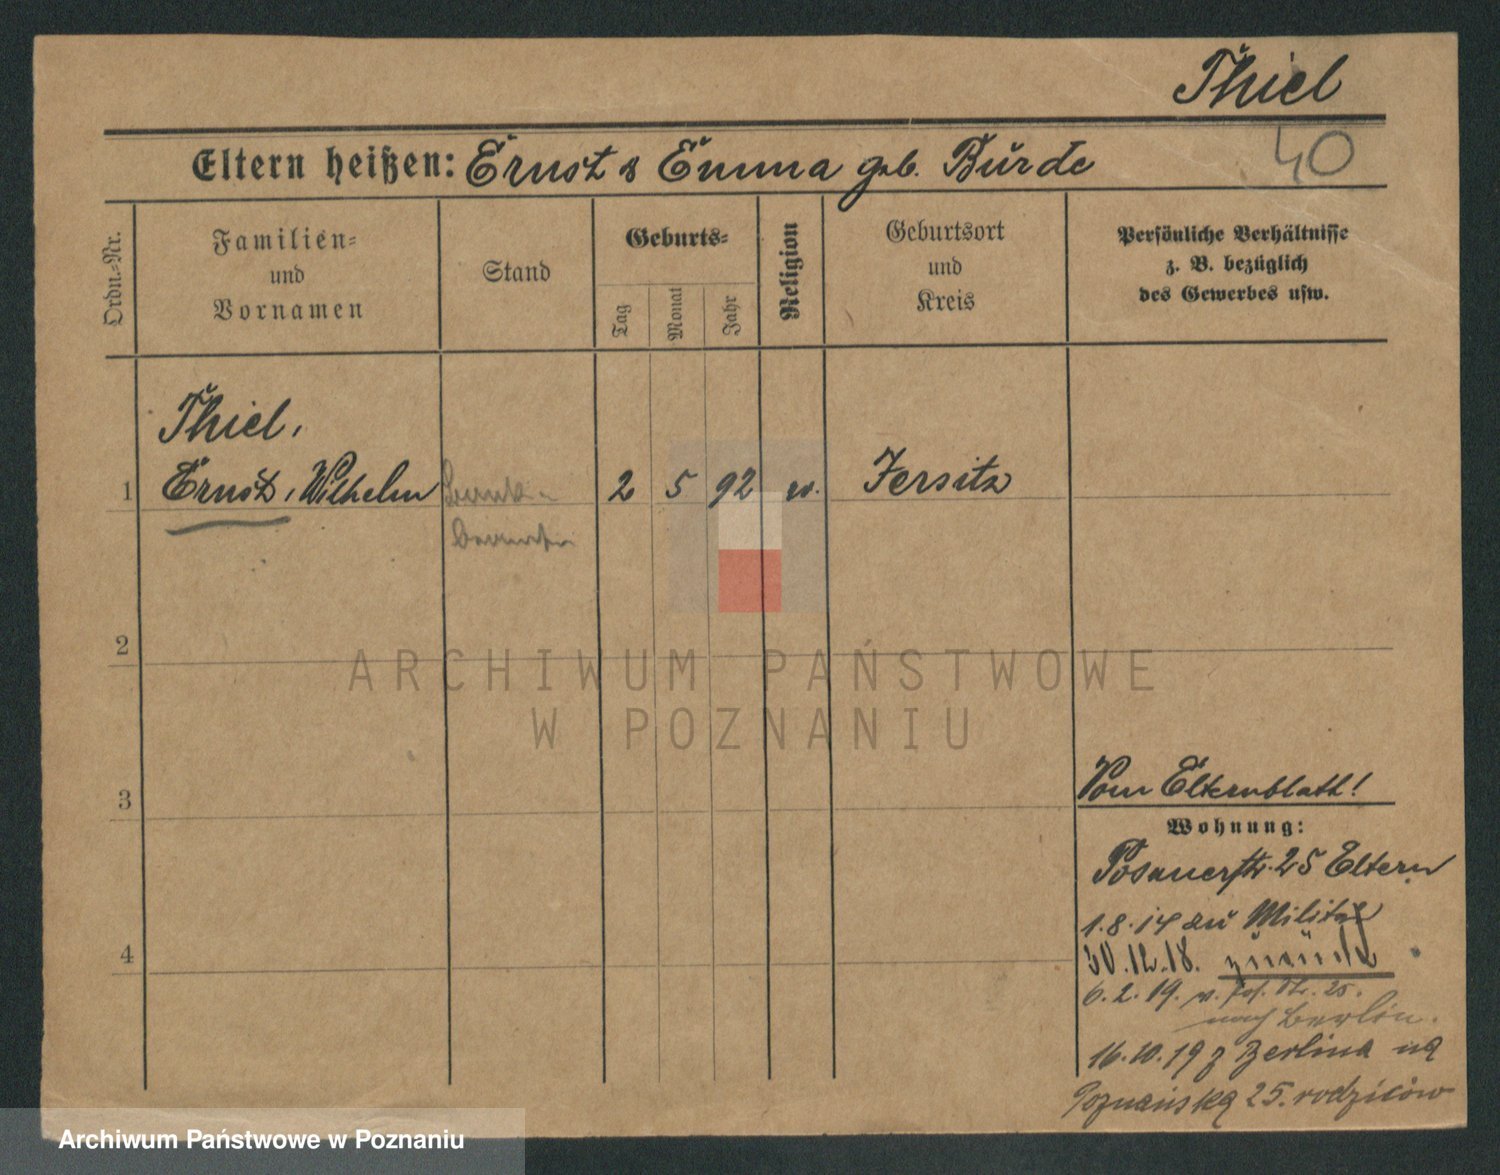 Thiel
40
Eltern heißen: Ernst & Emma geb. Bürde
Ordn.-Nr.
Familien-
und
Vornamen
Stand
Geburts-
Tag
Monat
Jahr
Religion
Geburtsort
und
Kreis
Persönliche Verhältnisse
z. B. bezüglich
des Gewerbes usw.
Thiel,
1 Ernst, Wilhelm 2 5 92 ev. Jersitz
2
3
4
ARCHIWUM PAŃSTWOWE
W POZNANIU
Vom Elternblatt!
Wohnung:
Posenerstr. 25 Eltern
1.8.14 zu Militär
30.12.18. zurück
6.2.19. v. Pos. Str. 25.
nach Berlin.
16.10.19 z Berlina na
Poznańską 25. rodziców
Archiwum Państwowe w Poznaniu